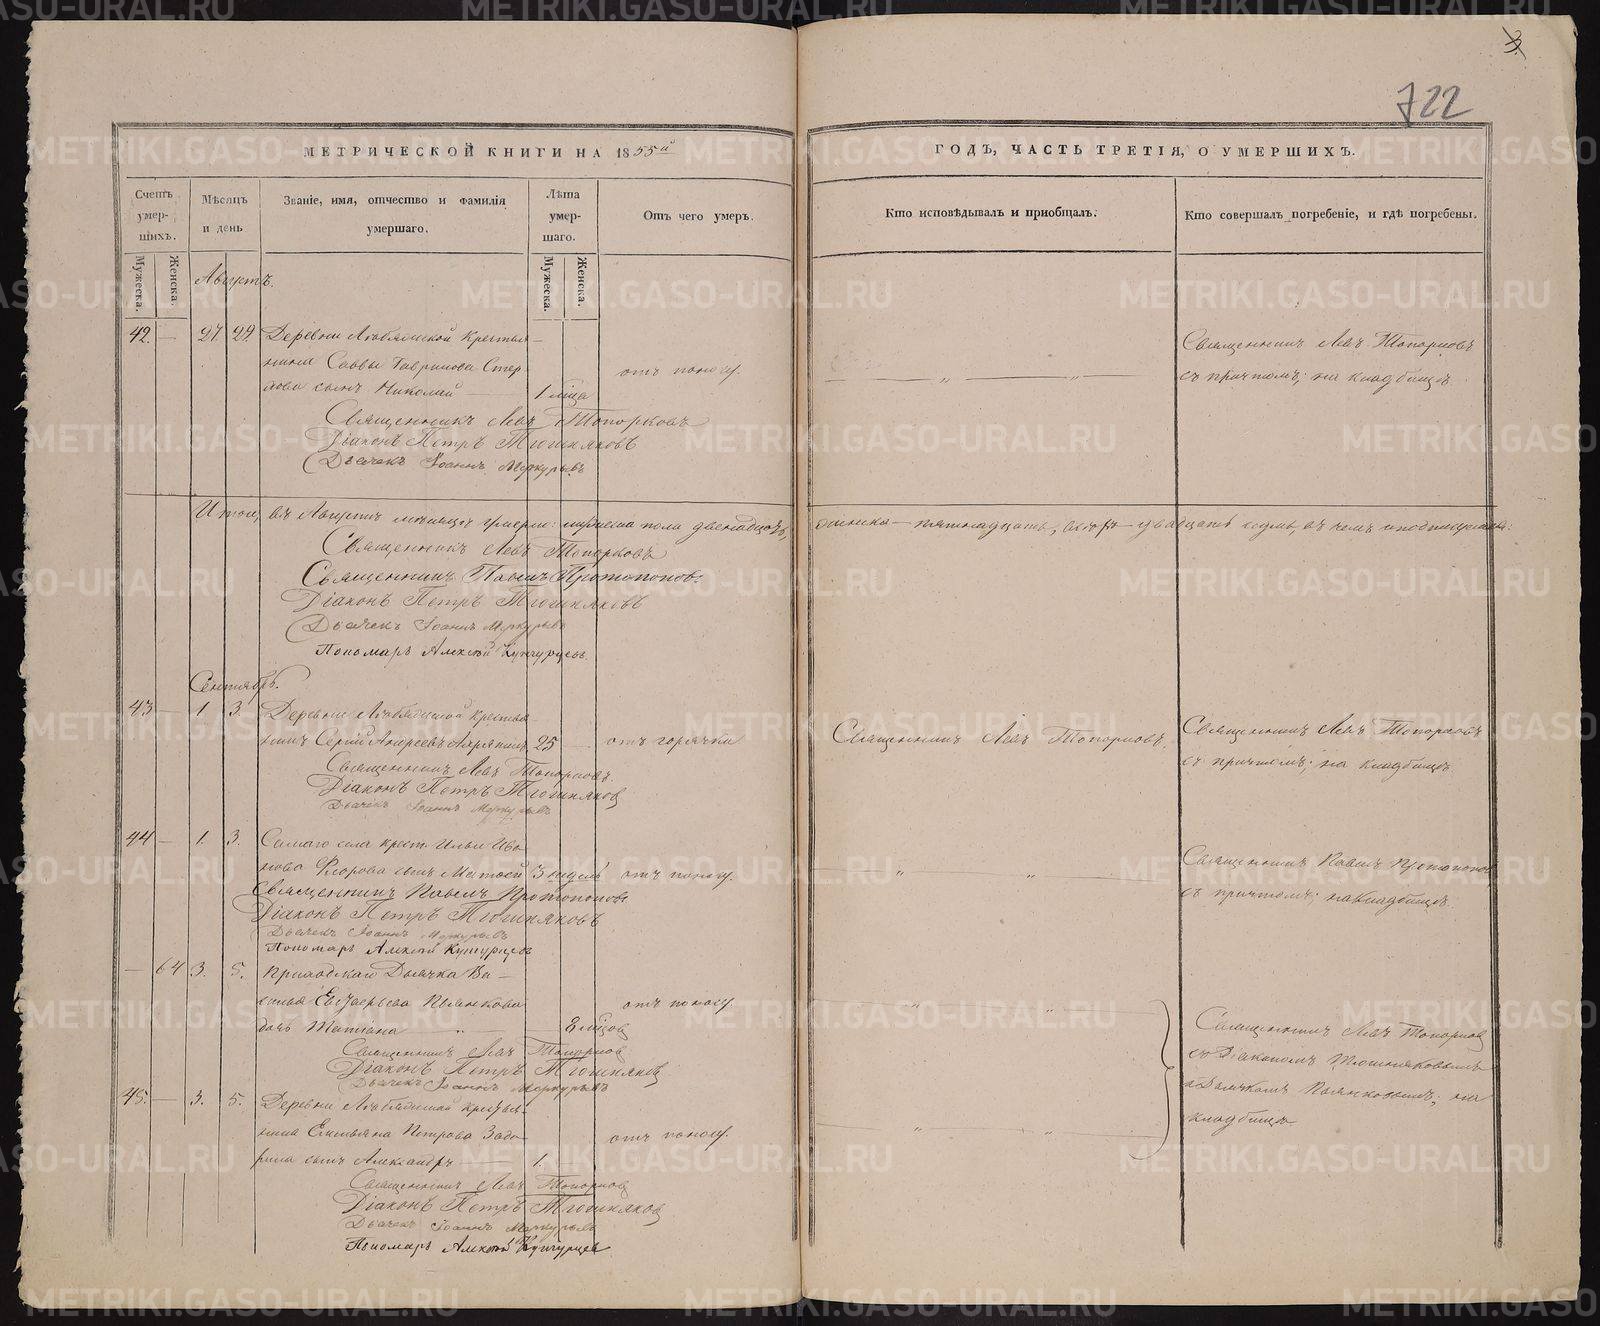 722
МЕТРИЧЕСКОЙ КНИГИ НА 1855й
ГОДЪ, ЧАСТЬ ТРЕТІЯ, О УМЕРШИХЪ.
Счетъ умер-шихъ.
Мѣсяцъ и день
Званіе, имя, отчество и фамилія умершаго.
Лѣта умер-шаго.
Отъ чего умеръ.
Кто исповѣдывалъ и пріобщалъ.
Кто совершалъ погребеніе, и гдѣ погребены.
Мужеска.
Женска.
Мужеска.
Женска.
Августъ.
42. — 27 29 Деревни крестья-
нина Саввы Гаврилова
сынъ Николай — 1 м҃ца отъ поносу.
Священникъ Левъ Топорковъ
съ причтомъ; на кладбищѣ.
Священникъ Левъ Топорковъ
Діаконъ Петръ Тюшняковъ
Дьячекъ Іоаннъ Меркурьевъ
Итого, въ Августѣ мѣсяцѣ умерло: мужеска пола двенадцать, женска — пятнадцать, — двадцать седмь, въ чемъ и подписуемся:
Священникъ Левъ Топорковъ
Священникъ Павелъ Протопоповъ.
Діаконъ Петръ Тюшняковъ
Дьячекъ Іоаннъ Меркурьевъ
Пономарь Алексѣй Кунгурцевъ.
Сентябрь.
43 — 1. 3. Деревни крестья-
нинъ Сергій Андреевъ 25 — отъ горячки
Священникъ Левъ Топорковъ.
Священникъ Левъ Топорковъ
съ причтомъ; на кладбищѣ.
Священникъ Левъ Топорковъ.
Діаконъ Петръ Тюшняковъ
Дьячекъ Іоаннъ Меркурьевъ
44 — 1. 3. Самаго села крест. Ильи Ива-
нова Флорова сынъ Матѳей 3 недѣль отъ поносу.
Священникъ Павелъ Протопоповъ
съ причтомъ; на кладбищѣ.
Священникъ Павелъ Протопоповъ
Діаконъ Петръ Тюшняковъ
Дьячекъ Іоаннъ Меркурьевъ
Пономарь Алексѣй Кунгурцевъ
— 64 3. 5. Дьячка Ва-
силья Пьянкова отъ поносу.
дочь Татіана — 8 м҃цовъ
Священникъ Левъ Топорковъ
съ Діакономъ Тюшняковымъ
и Дьячкомъ Пьянковымъ; на
кладбищѣ.
Священникъ Левъ Топорковъ
Діаконъ Петръ Тюшняковъ
Дьячекъ Іоаннъ Меркурьевъ
45. — 3. 5. Деревни крестья-
нина Емельяна Петрова Задо-
рина сынъ Александръ — 1. отъ поносу.
Священникъ Левъ Топорковъ
Діаконъ Петръ Тюшняковъ
Дьячекъ Іоаннъ Меркурьевъ
Пономарь Алексѣй Кунгурцевъ
METRIKI.GASO-URAL.RU